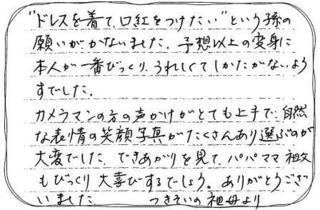 "ドレスを着て、口紅をつけたい"という孫の
願いがかないました。予想以上の変身に
本人が一番びっくり、うれしくてしかたがないよう
すでした。
カメラマンの方の声がけがとても上手で、自然
な表情の笑顔写真がたくさんあり選ぶのが
大変でした。できあがりを見て、パパママ祖父
もびっくり大喜びするでしょう。ありがとうござ
いました。 つきそいの祖母より